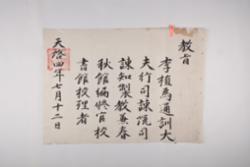 教旨
李植爲通訓大
夫行司諫院司
諫知製教兼春
秋館編修官校
書館校理者
天啓四年七月十二日